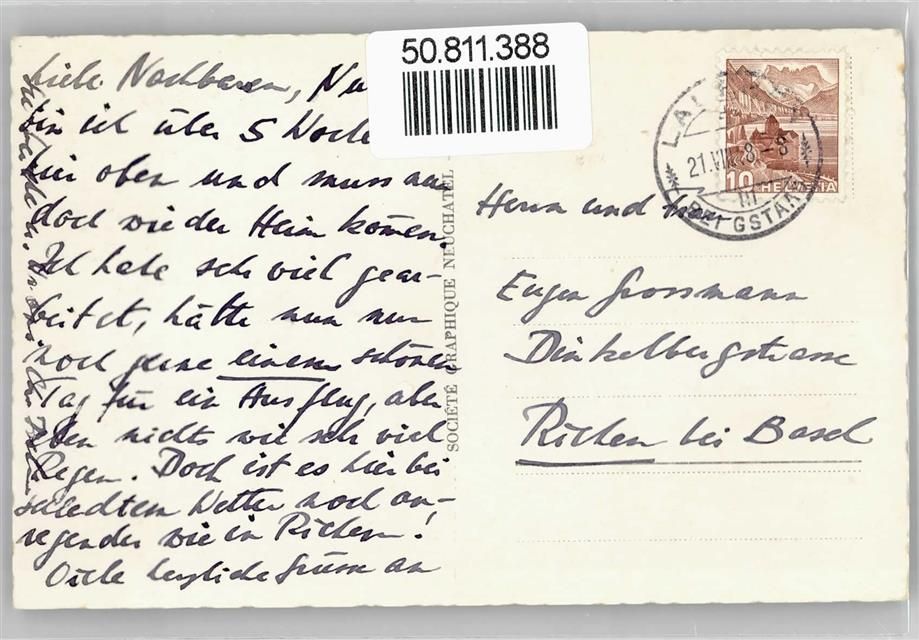 50.811.388
Liebe Nachbaren, Nu
bin ich über 5 Woche
hier oben und muss nun
doch wieder Heim komen.
Ich habe sehr viel gear-
beitet, hätte nun nur
noch gerne einen schönen
Tag für ein Ausflug, aber
eben nichts wie sehr viel
Regen. Doch ist es hier bei
schlechtem Wetter noch an-
regender wie in Richen!
Viele herzliche Grüsse an
SOCIÉTÉ GRAPHIQUE NEUCHATEL
21.VIII. 8-8
10 HELVETIA
Herrn und Frau
Eugen Grossmann
Dinkelbergstrasse
Richen bei Basel